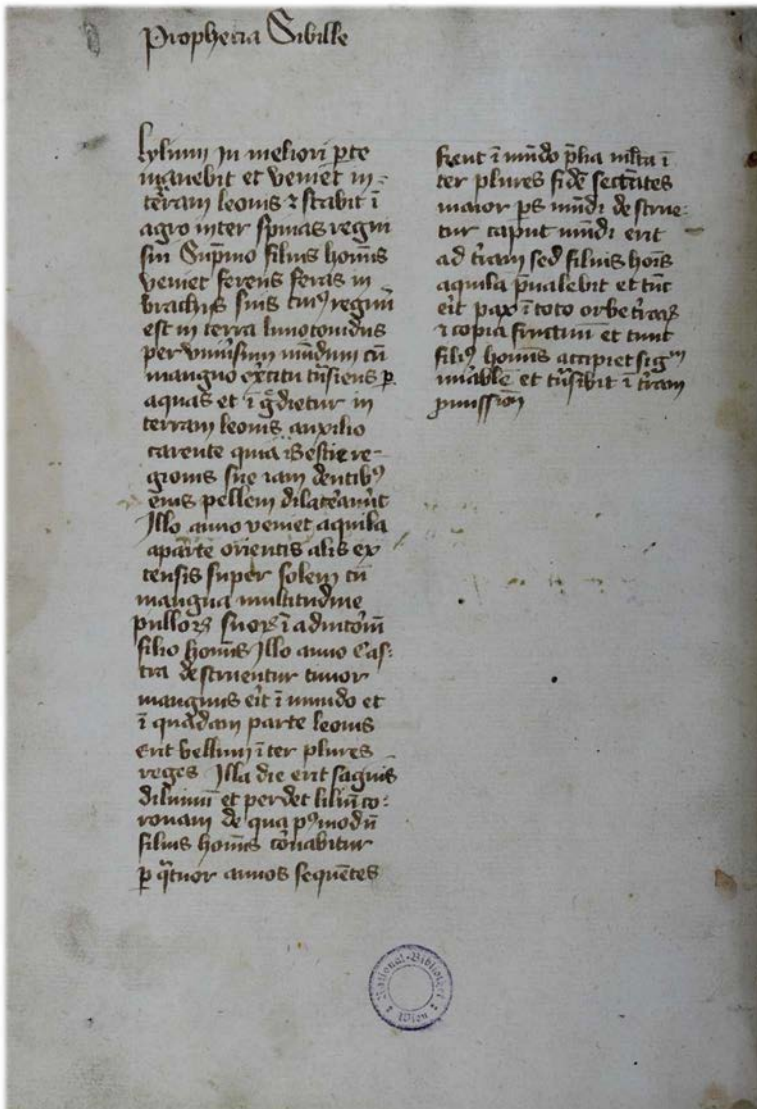 Prophecia Sibille
Lylium in meliori p̱te
manebit et veniet in
terram leonis ⁊ stabit ī
agro inter spinas regni
sui Supmo filius homīs
veniet ferens feras in
brachijs suis cuiꝰ regnū
est in terra lunotonidus
per vniūsum mūdum cū
mangno ex̄citu tn̄siens ꝑ
aquas et ī gdietur in
terram leonis auxilio
carente quia Bestie re-
gionis sue iam dentibꝰ
eius pellem dilacerauīt
Illo anno veniet aquila
aparte orientis alis ex
tensis super solem cū
mangna multitudine
pulloꝝ suoꝝ ī adiutoꝛiū
filio homīs Illo anno Cas-
tra destruentur timor
mangnus erit ī mundo et
ī quadam parte leonis
Erit bellum īter plures
reges Illa die erit saguis
diluuiū et perdet liliū co-
ronam de qua pꝰmodū
filius homīs coꝛonabitur
ꝑ qͣtuor annos sequētes
fient ī mūdo p̄lia ml̄ta ī
ter plures fidē sectātes
maior ps mūdi destrue-
tur caput mūdi erit
ad tr̄am sed filius hoīs
aquila p̄ualebit et tūc
erit pax ī toto orbe tr̄aꝝ
⁊ copia fructuū et tunc
filiꝰ homīs accipiet sigᵐ
mirable et tn̄sibit ī tr̄am
pmissiōn
National-Bibliothek
Wien